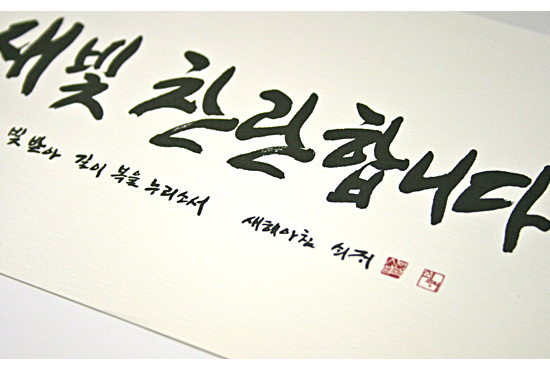 새빛 찬란합니다
빛 받아 길이 복을 누리소서
새해아침 쇠귀